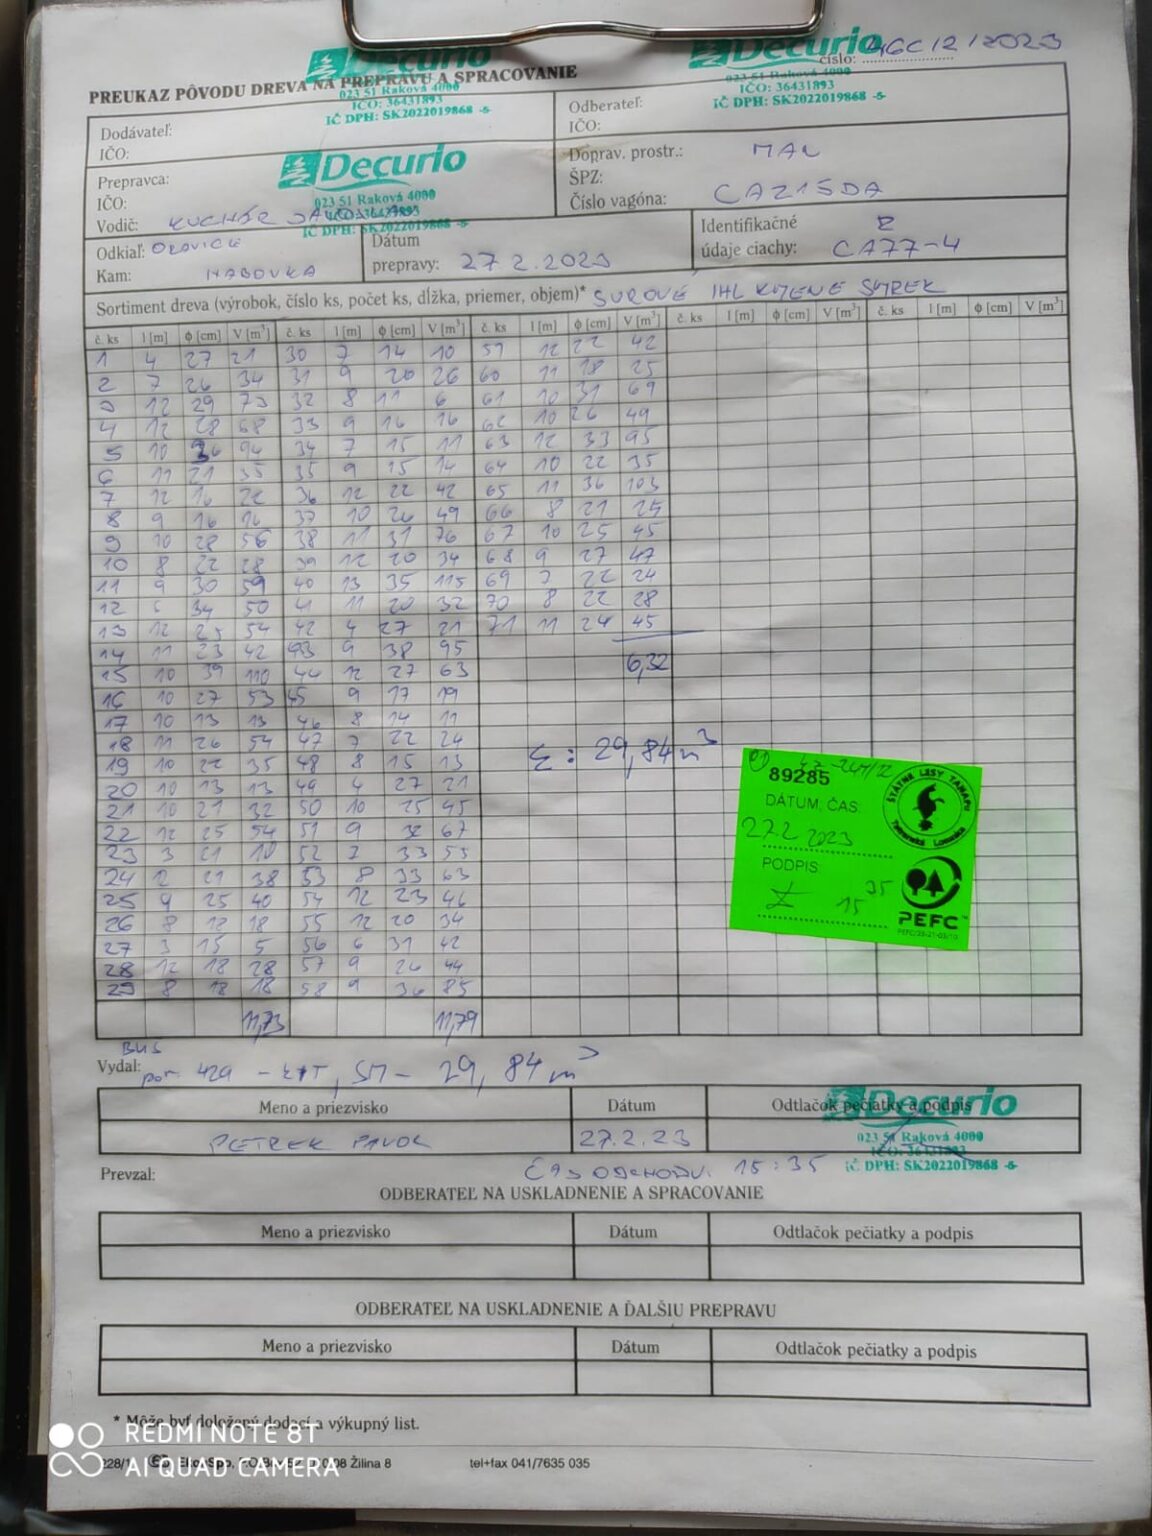 Decurio
023 51 Raková 4000
IČO: 36431893
IČ DPH: SK2022019868 -5-
Decurio
023 51 Raková 4000
IČO: 36431893
IČ DPH: SK2022019868 -5-
číslo: 46C/2/2023
PREUKAZ PÔVODU DREVA NA PREPRAVU A SPRACOVANIE
Dodávateľ:
IČO:
Odberateľ:
IČO:
Prepravca:
IČO:
Decurio
023 51 Raková 4000
IČ DPH: SK2022019868 -5-
Vodič: KUCHÁR
Doprav. prostr.: MAN
ŠPZ:
Číslo vagóna: CA215DA
Odkiaľ: ORAVICE
Kam: HABOVKA
Dátum
prepravy: 27.2.2023
Identifikačné
údaje ciachy: CA77-4
Sortiment dreva (výrobok, číslo ks, počet ks, dĺžka, priemer, objem)* SUROVÉ IHL KMENE SMREK
č. ks l [m] ϕ [cm] V [m³] č. ks l [m] ϕ [cm] V [m³] č. ks l [m] ϕ [cm] V [m³] č. ks l [m] ϕ [cm] V [m³] č. ks l [m] ϕ [cm] V [m³]
1 4 27 21 30 7 14 10 59 12 22 42
2 7 26 34 31 9 20 26 60 11 18 25
3 12 29 73 32 8 11 6 61 10 31 69
4 12 28 68 33 9 16 16 62 10 26 49
5 10 36 94 34 7 15 11 63 12 33 95
6 11 21 35 35 9 15 14 64 10 22 35
7 12 16 22 36 12 22 42 65 11 36 103
8 9 16 16 37 10 26 49 66 8 21 25
9 10 28 56 38 11 31 76 67 10 25 45
10 8 22 28 39 12 20 34 68 9 27 47
11 9 30 59 40 13 35 115 69 7 22 24
12 34 50 41 11 20 32 70 8 22 28
13 12 25 54 42 4 27 21 71 11 24 45
14 11 23 42 43 9 38 95
15 10 39 110 44 12 27 63 6,32
16 10 27 53 45 9 17 19
17 10 13 13 46 8 14 11
18 11 26 54 47 7 22 24 Σ: 29,84 m³
19 10 22 35 48 8 15 13
20 10 13 13 49 4 27 21
21 10 21 32 50 10 25 45
22 12 25 54 51 9 32 67
23 3 21 10 52 7 33 55
24 12 21 38 53 8 33 63
25 9 25 40 54 12 23 46
26 8 18 18 55 12 20 34
27 3 15 5 56 6 31 42
28 12 18 28 57 9 26 44
29 8 18 18 58 9 36 85
11,73 11,79
89285
ŠTÁTNE LESY TANAPU
Tatranská Lomnica
DÁTUM, ČAS
27.2 2023
PODPIS
15 35
PEFC™
Vydal:
por 429 - , SM - 29,84 m³
Meno a priezvisko Dátum Odtlačok pečiatky a podpis
PETREK PAVOL 27.2.23
Decurio
023 51 Raková 4000
IČO: 36431893
IČ DPH: SK2022019868 -5-
Prevzal: ČAS ODCHODU: 15:35
ODBERATEĽ NA USKLADNENIE A SPRACOVANIE
Meno a priezvisko Dátum Odtlačok pečiatky a podpis
ODBERATEĽ NA USKLADNENIE A ĎALŠIU PREPRAVU
Meno a priezvisko Dátum Odtlačok pečiatky a podpis
* Môže byť doložený dodací a výkupný list.
REDMI NOTE 8T
AI QUAD CAMERA
Žilina 8 tel+fax 041/7635 035